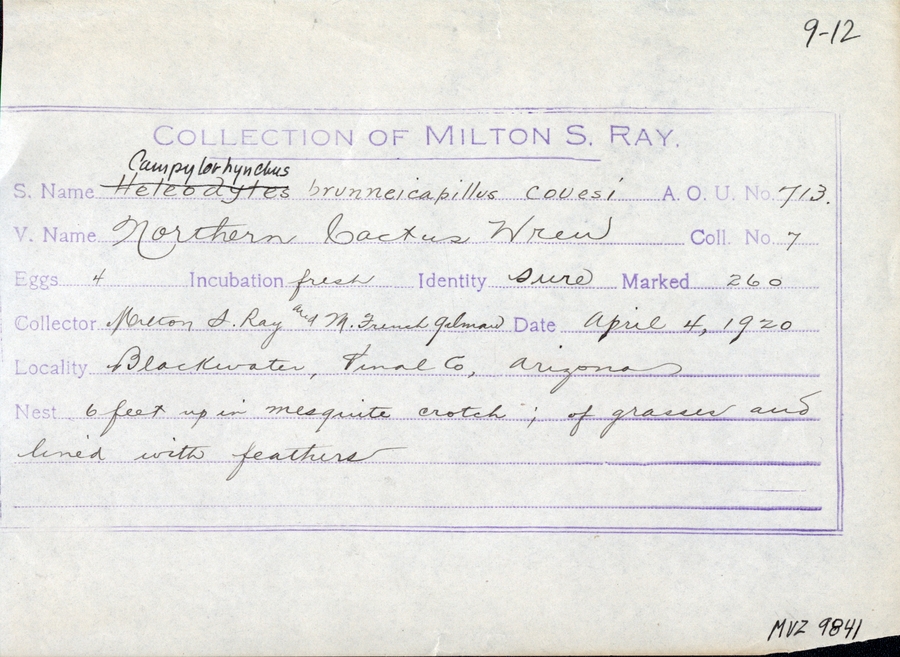 9-12
COLLECTION OF MILTON S. RAY.
Campylorhynchus
S. Name Heleodytes brunneicapillus couesi A. O. U. No. 713.
V. Name Northern Cactus Wren Coll. No. 7
Eggs 4 Incubation fresh Identity sure Marked 260
Collector Milton S. Ray and M. French Gilman Date April 4, 1920
Locality Blackwater, Pinal Co, Arizona
Nest 6 feet up in mesquite crotch ; of grasses and
lined with feathers
MVZ 9841